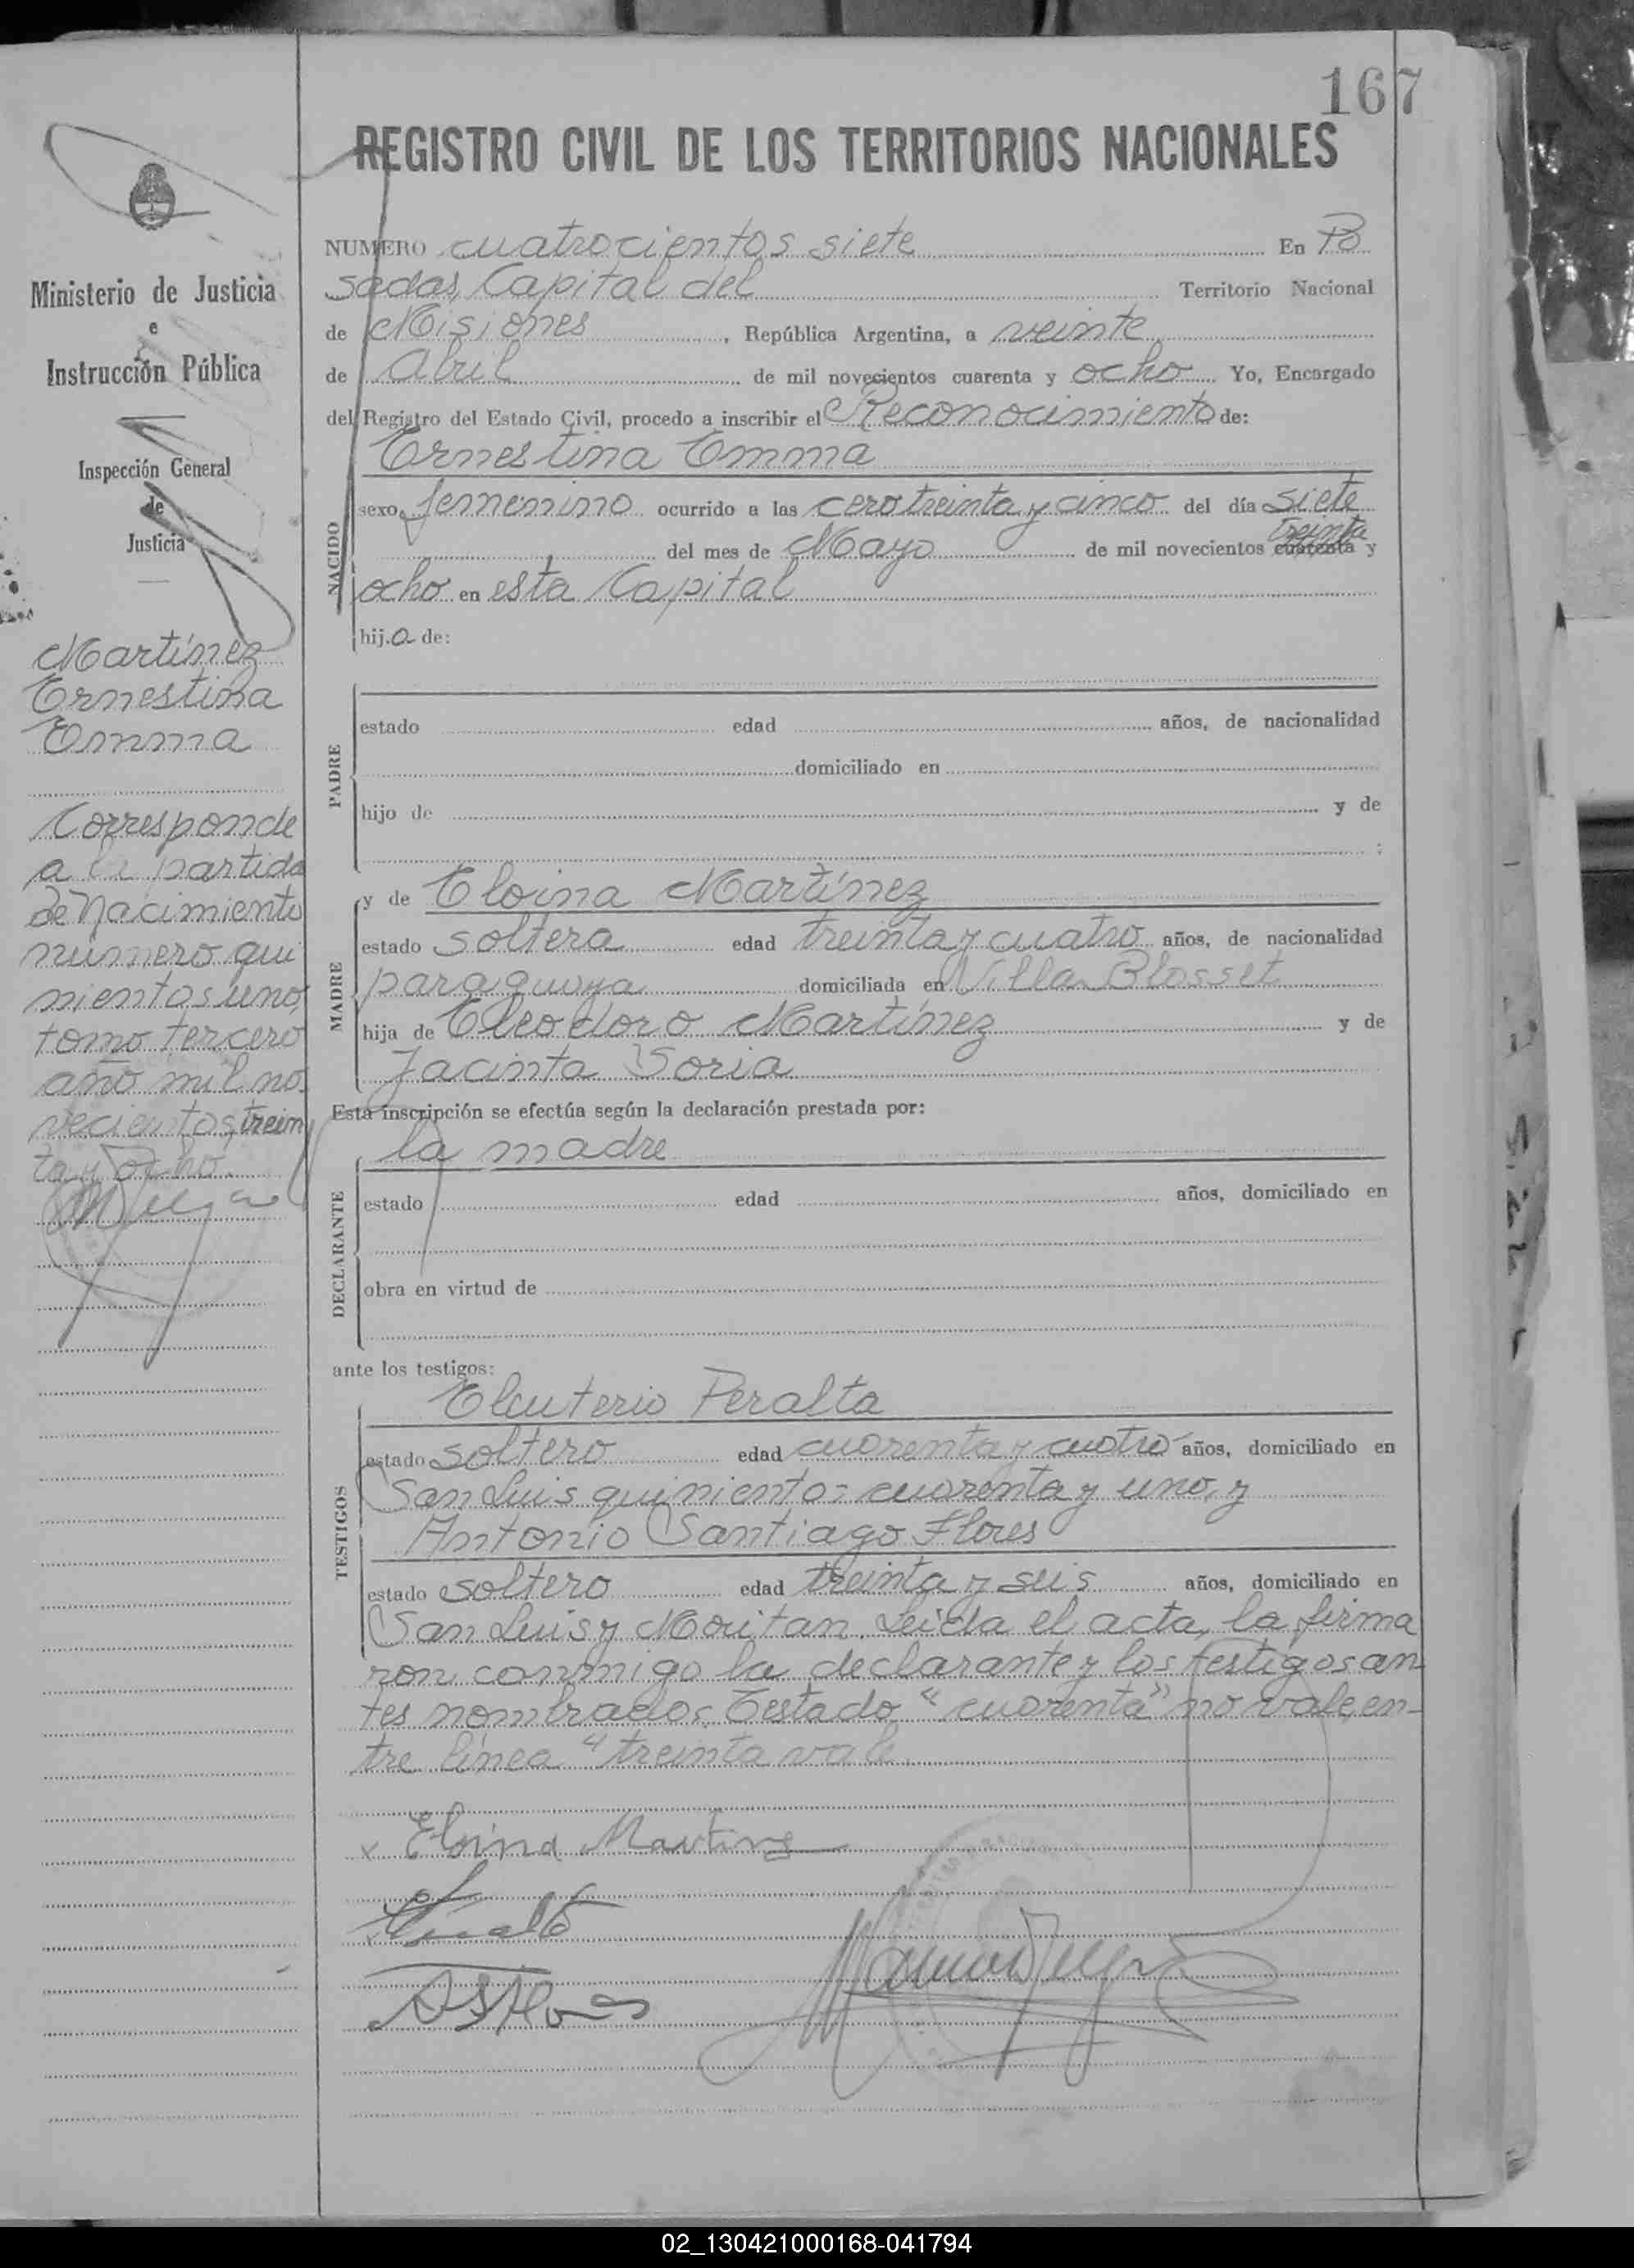 167
REGISTRO CIVIL DE LOS TERRITORIOS NACIONALES
Ministerio de Justicia
e
Instrucción Pública
Inspección General
de
Justicia
Martínez
Ernestina
Emma
Corresponde
a la partida
de Nacimiento
número qui
nientos uno,
tomo tercero
año mil no
vecientos trein
ta y ocho.
NUMERO cuatrocientos siete En Po
sadas, Capital del Territorio Nacional
de Misiones, República Argentina, a veinte
de Abril de mil novecientos cuarenta y ocho Yo, Encargado
del Registro del Estado Civil, procedo a inscribir el Reconocimiento de:
Ernestina Emma
NACIDO
sexo femenino ocurrido a las cero treinta y cinco del día siete
treinta
del mes de Mayo de mil novecientos cuarenta y
ocho en esta Capital
hija de:
PADRE
estado edad años, de nacionalidad
domiciliado en
hijo de y de
;
MADRE
y de Eloina Martínez
estado soltera edad treinta y cuatro años, de nacionalidad
paraguaya domiciliada en Villa Blosset
hija de Eleodoro Martínez y de
Jacinta Soria
Esta inscripción se efectúa según la declaración prestada por:
la madre
DECLARANTE
estado edad años, domiciliado en
obra en virtud de
ante los testigos:
TESTIGOS
Eleuterio Peralta
estado soltero edad cuarenta y cuatro años, domiciliado en
San Luis quinientos cuarenta y uno, y
Antonio Santiago Flores
estado soltero edad treinta y seis años, domiciliado en
San Luis y Moritan. Leída el acta, la firma
ron conmigo la declarante y los testigos an
tes nombrados. Testado "cuarenta" no vale, en-
tre línea "treinta vale.
x Eloina Martinez
02_130421000168-041794